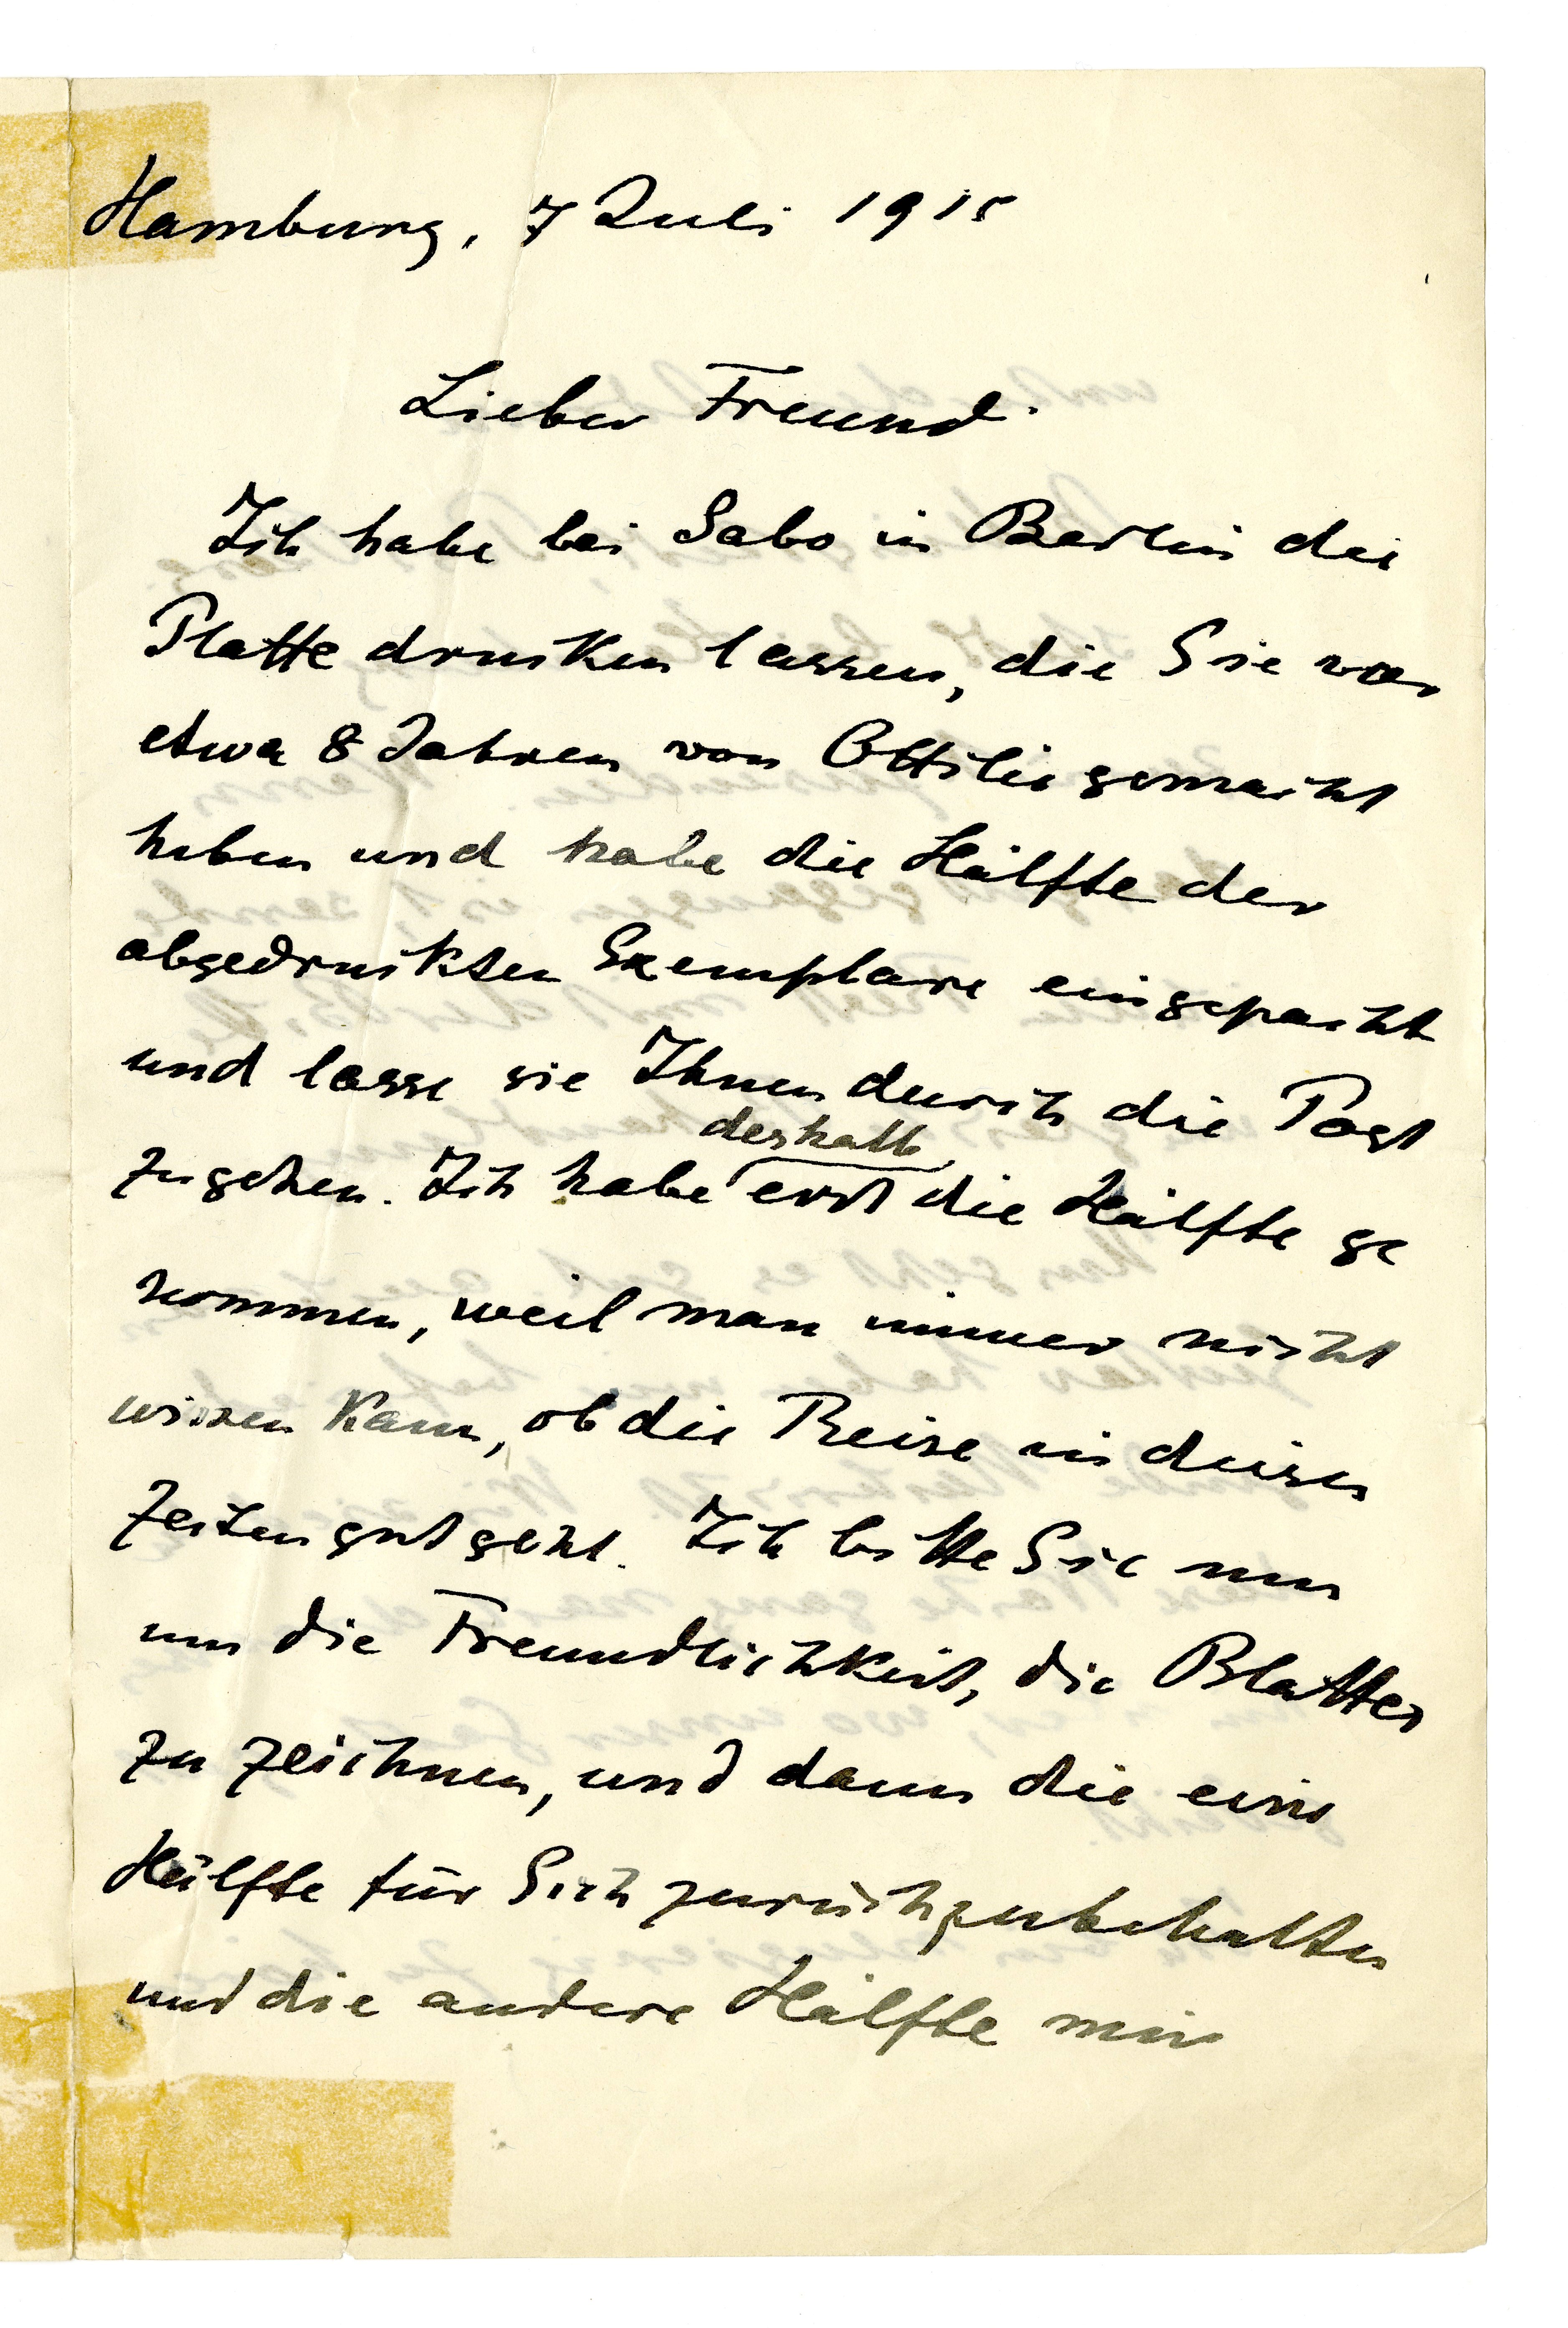 Hamburg, 7 Juli 1915
Lieber Freund.
Ich habe bei Sabo in Berlin die
Platte drucken lassen, die Sie vor
etwa 8 Jahren von Ottilie gemacht
haben und habe die Hälfte der
abgedruckten Exemplare eingepackt
und lasse sie Ihnen durch die Post
deshalb
zugehen. Ich habe erst die Hälfte ge
nommen, weil man immer nicht
wissen kann, ob die Reise in diesen
Zeiten gut geht. Ich bitte Sie nun
um die Freundlichkeit, die Blatter
zu zeichnen, und dann die eine
Hälfte für Sich zurückzubehalten
und die andere Hälfte mir